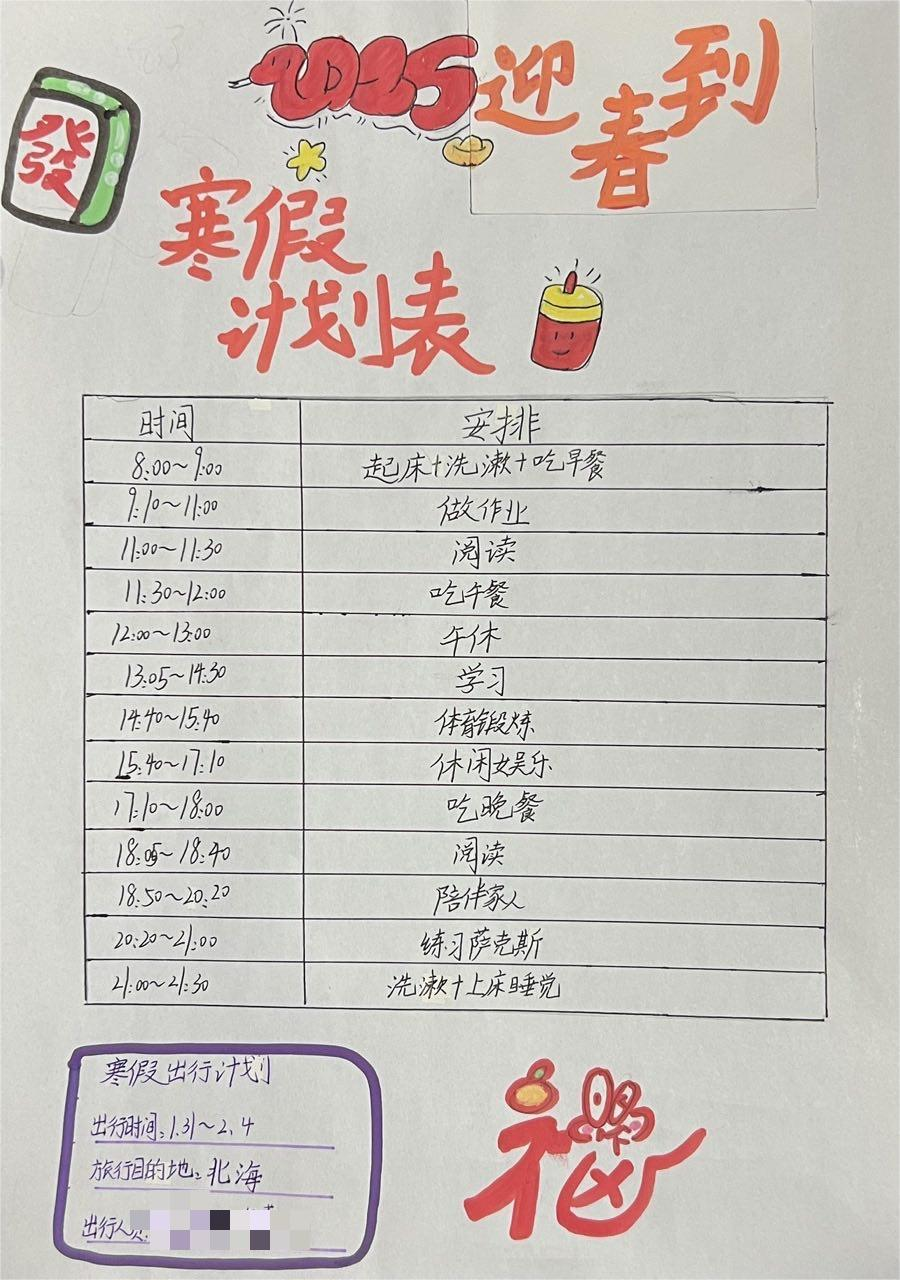 2025迎春到
發
寒假
计划表
时间 安排
8:00~9:00 起床+洗漱+吃早餐
9:10~11:00 做作业
11:00~11:30 阅读
11:30~12:00 吃午餐
12:00~13:00 午休
13:05~14:30 学习
14:40~15:40 体育锻炼
15:40~17:10 休闲娱乐
17:10~18:00 吃晚餐
18:05~18:40 阅读
18:50~20:20 陪伴家人
20:20~21:00 练习萨克斯
21:00~21:30 洗漱+上床睡觉
寒假出行计划
出行时间:1.31~2.4
旅行目的地:北海
出行人员:
福